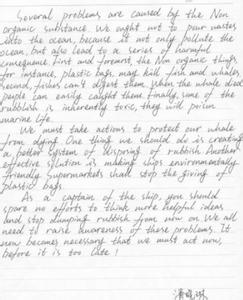 Several problems are caused by the Non
organic substance. We ought not to pour wastes
into the ocean, because it not only pollute the
ocean, but also lead to a series of harmful
consequence. First and foremost, the Non organic things
for instance, plastic bags, may kill fish and whales
Second, fishes can't digest them. When the whale died
people can easily caught them. Finally, some of the
rubblish is inherently toxic, they will poison
marine life.
We must take actions to protect our whale
from dying. One thing we should do is creating
a better system of disposing of rubbish. Another
effective solution is making ships environmentally-
friendly. Supermarkets shall stop the giving of
plastic bags.
As a captain of the ship, you should
spare no efforts to think more helpful ideas
and stop dumping rubbish from now on. We all
need to raise awareness of these problems. It
now becomes necessary that we must act now,
before it is too late!